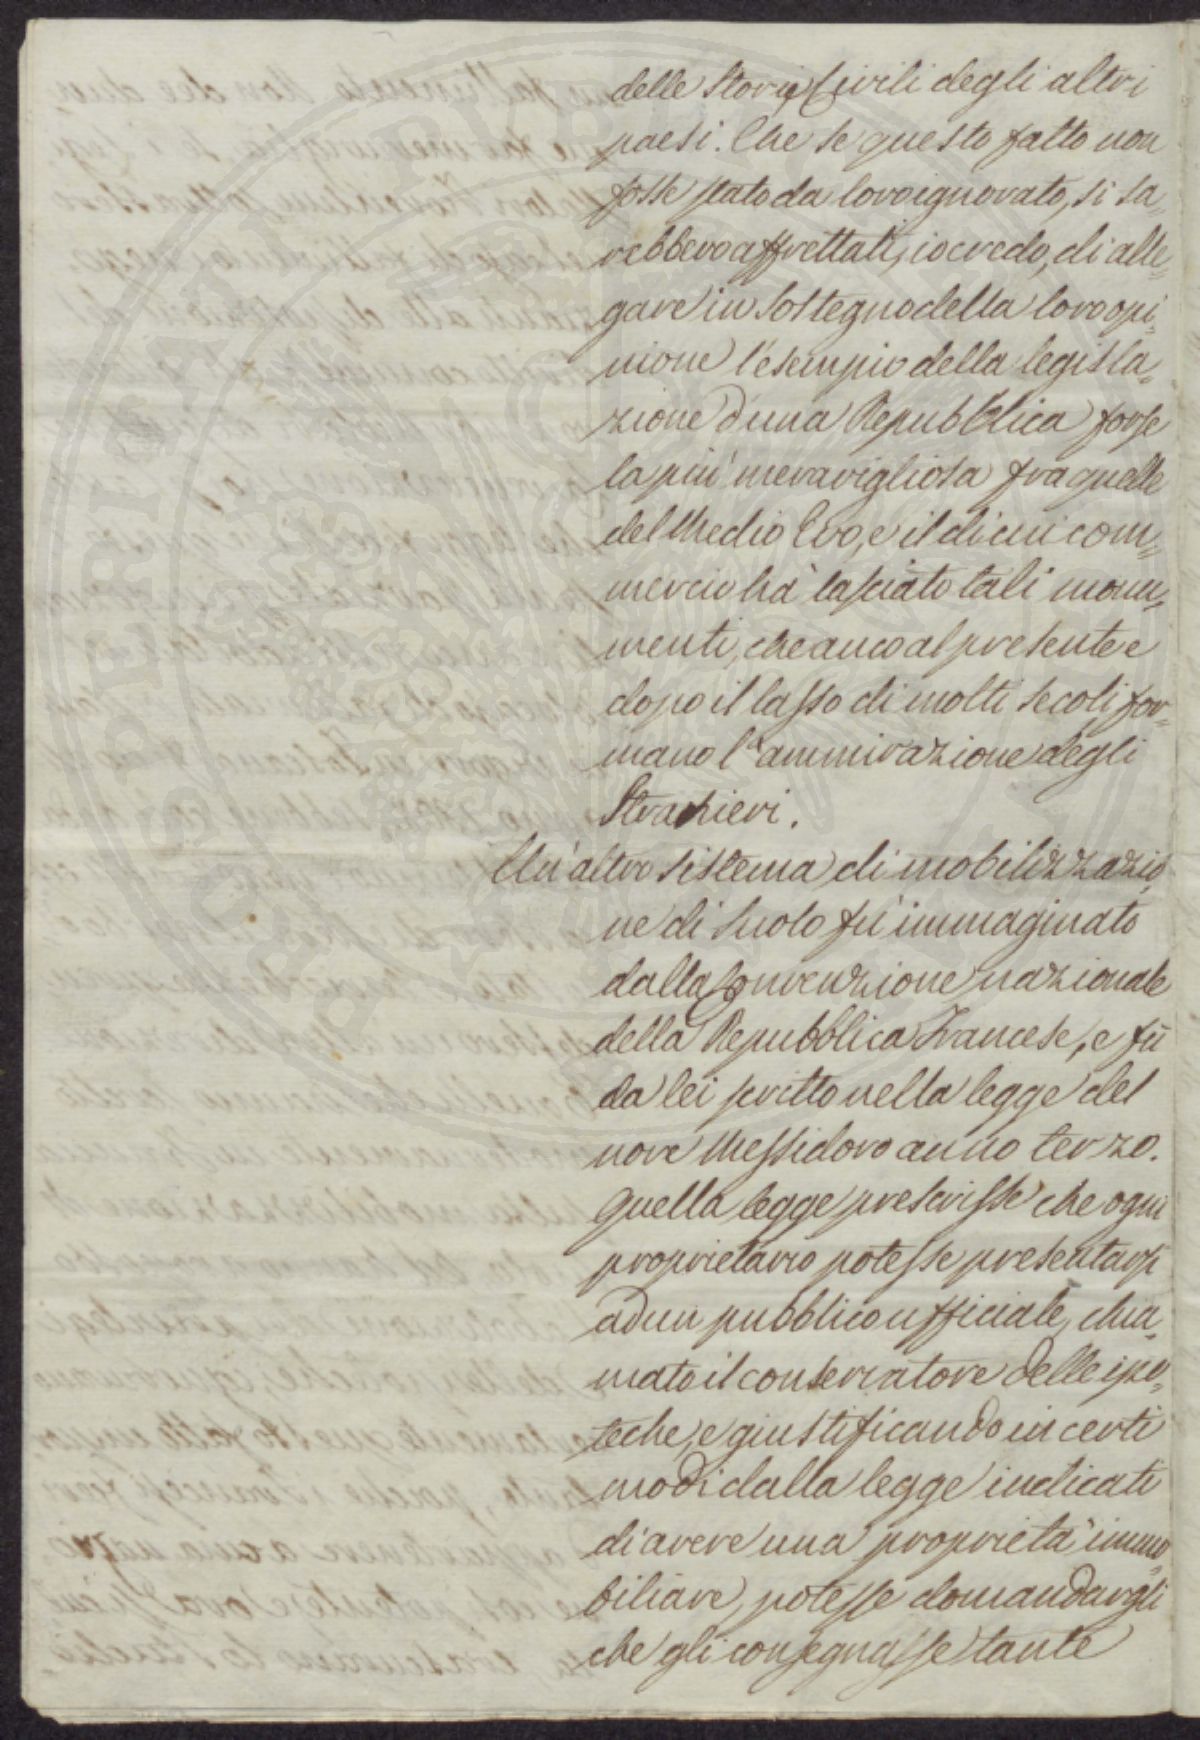 delle Storie Civili degli altri
paesi. Che se questo fatto non
fosse stato da loro ignorato, si sa=
rebbero affrettati, io credo, di alle=
gare in sostegno della loro opi=
nione l'esempio della legisla=
zione d'una Repubblica forse
la più meravigliosa fra quelle
del Medio Evo, e il di cui com=
mercio hà lasciato tali monu=
menti, che anco al presente e
dopo il lasso di molti secoli for=
mano l'ammirazione degli
Stranieri.
Un'altro sistema di mobilizzazio
ne di suolo fù immaginato
dalla Convenzione nazionale
della Repubblica Francese, e fù
da lei scritto nella legge del
nove Messidoro anno terzo.
Quella legge prescrisse che ogni
proprietario potesse presentarsi
ad un pubblico ufficiale, chia=
mato il conservatore delle ipo=
teche, e giustificando in certi
modi dalla legge indicati
di avere una proprietà immo
biliare, potesse domandargli
che gli consegnasse tante
PROSPERITATI PUBLICAE